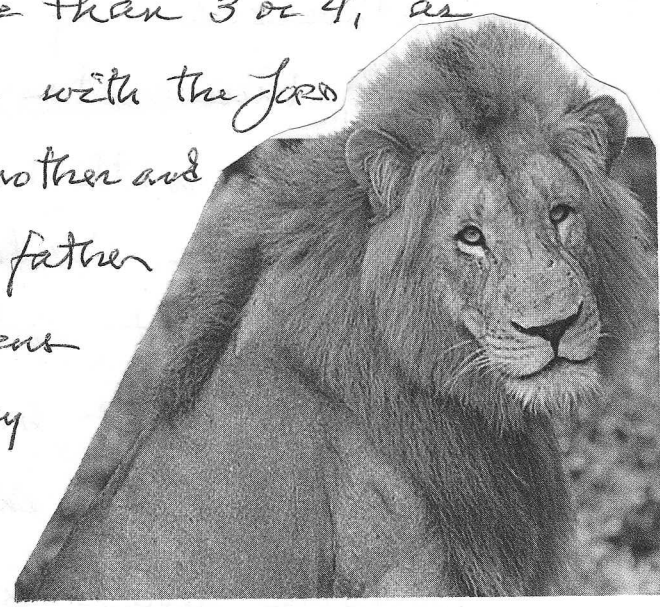 than 3 or 4, as
with the LORD
mother and
father